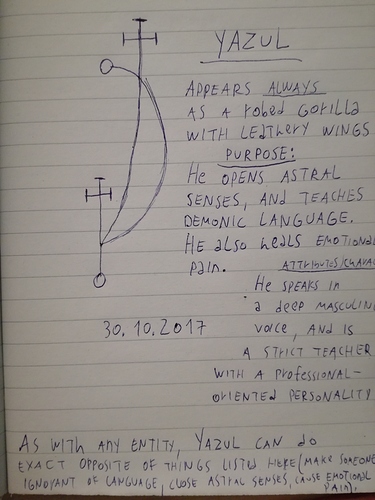 YAZUL
APPEARS ALWAYS
AS A robed GorillA
WITH LEATHery WINGS
PURPOSE:
He OPENS ASTRAL
SENSES, AND TEACHES
DEMONIC LANGUAGE.
HE also heals EMOTIONAL
PAIN.
He SPEAKS IN
a deep MASCULINE
voice, AND is
A STRICT TEACHER
WITH A PROFESSIONAL-
ORIENTED PERSONALITY
30.10.2017
AS WITH ANY ENTITY, YAZUL CAN do
EXACT OPPOSITE OF THINGS LISTED HERE (MAKE SOMEONE
IGNORANT OF LANGUAGE, CLOSE ASTRAL SENSES, CAUSE EMOTIONAL
PAIN).